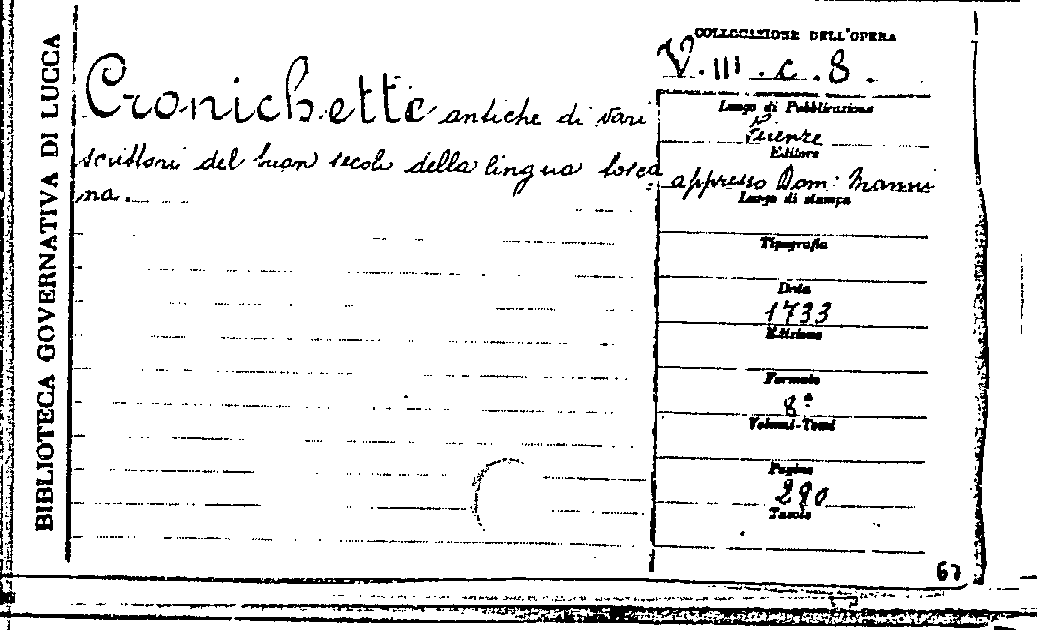 BIBLIOTECA GOVERNATIVA DI LUCCA
Cronichette antiche di vari
scrittori del buon secolo della lingua tosca
na.
COLLOCAZIONE DELL'OPERA
V. III. c. 8.
Luogo di Pubblicazione
Firenze
Editore
appresso Dom: Manni
Luogo di stampa
Tipografia
Data
1733
Edizione
Formato
8º
Volumi-Tomi
Pagine
290
Tavole
67